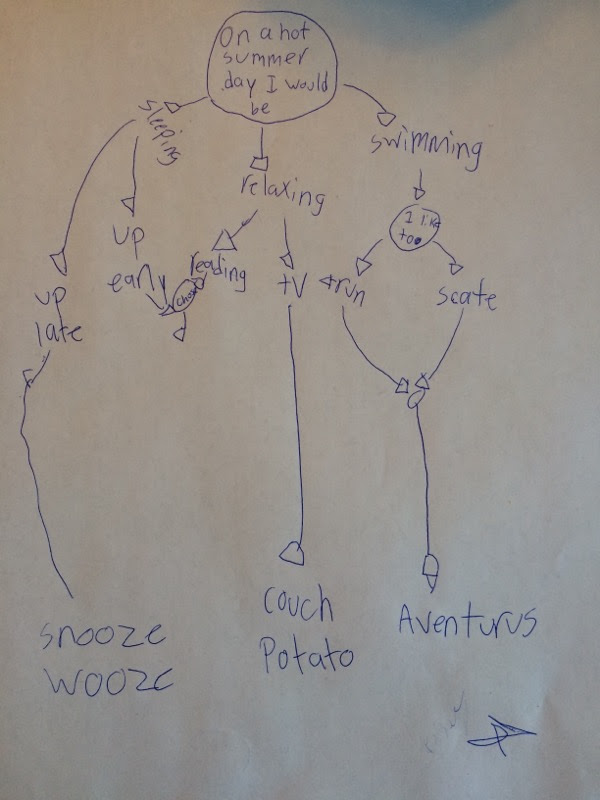 On a hot
summer
day I would
be
sleeping
swimming
relaxing
I like
too
up
early
reading
tV
run
scate
up
late
couch
Potato
Aventurus
snooze
wooze